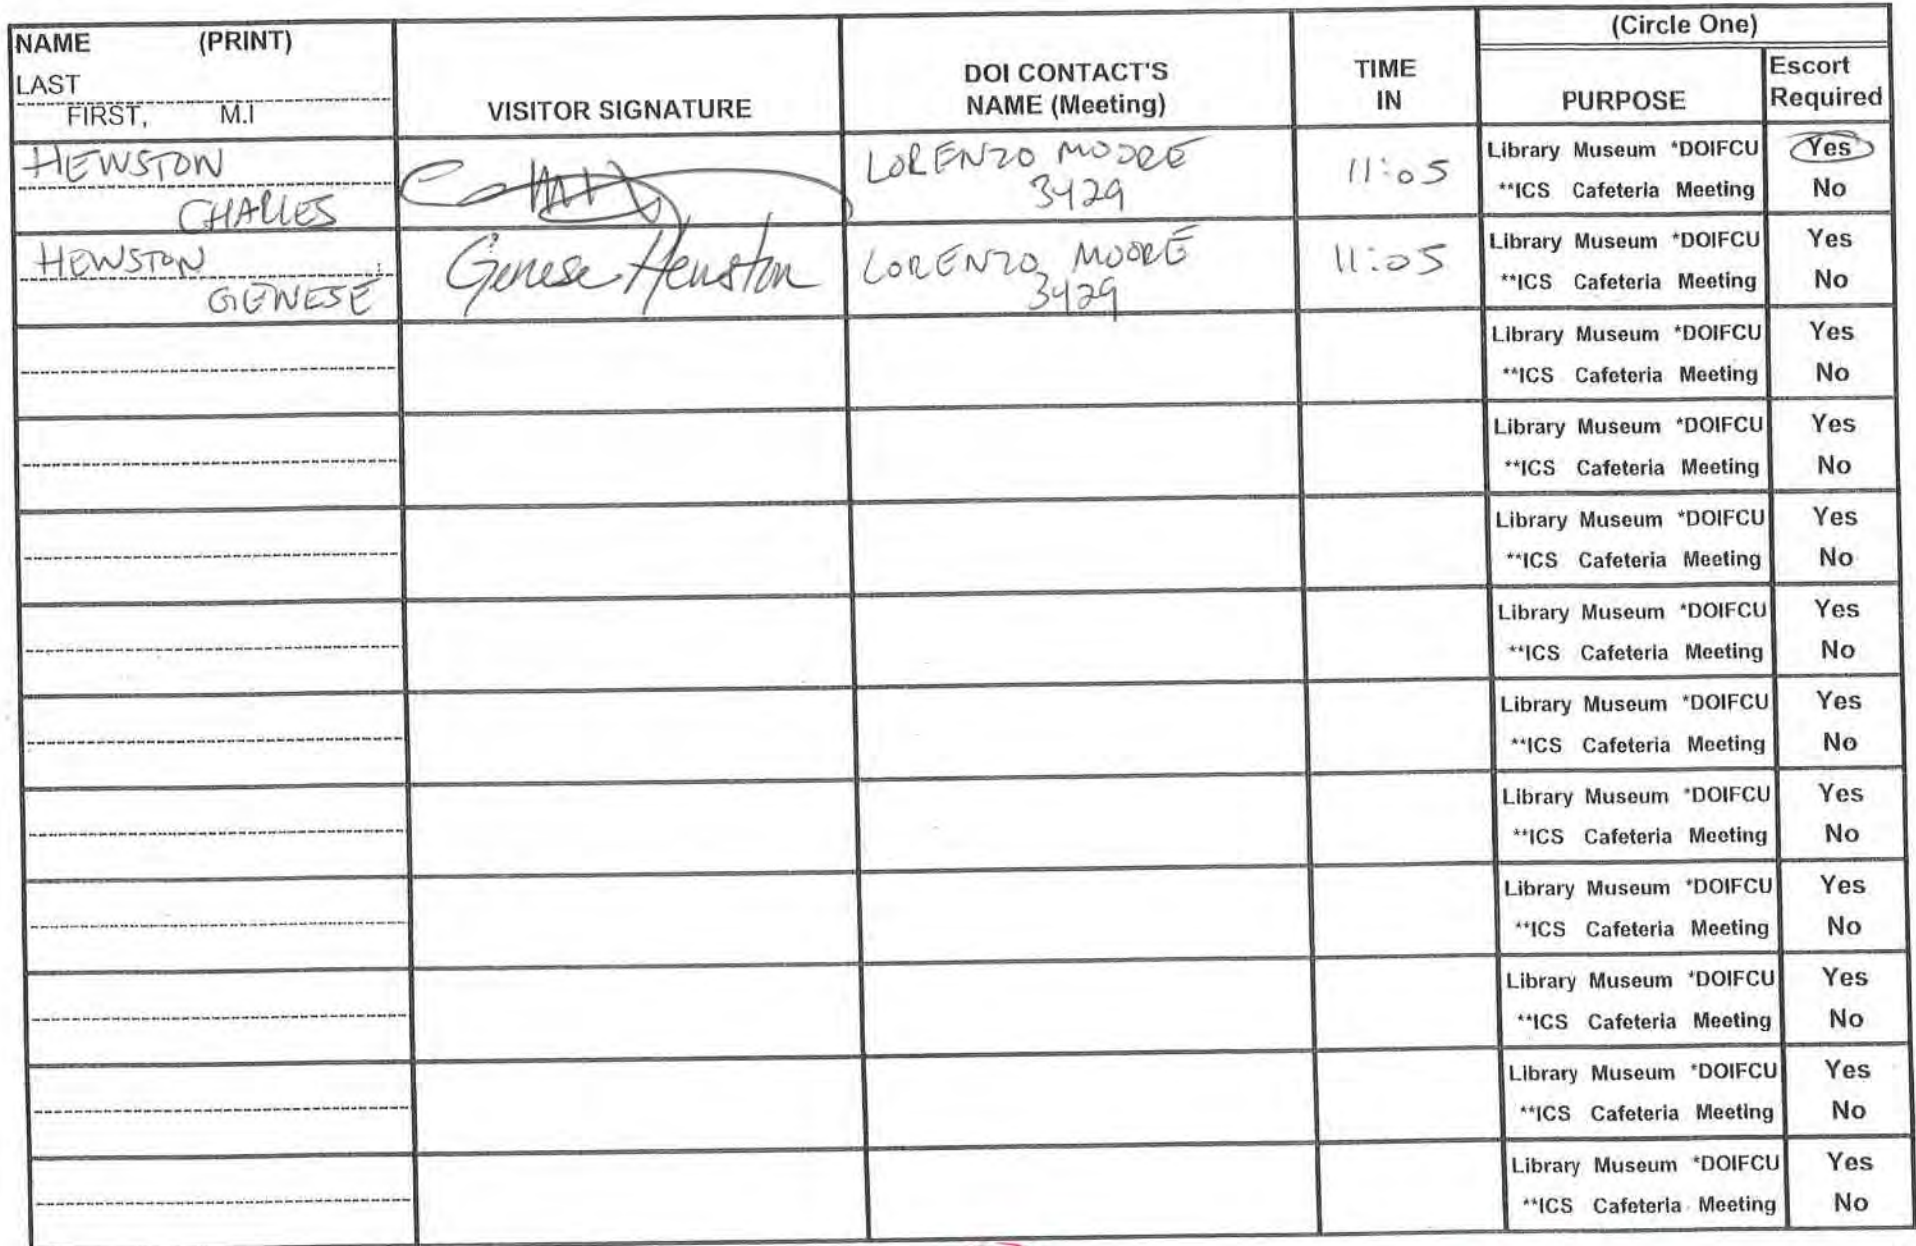 NAME (PRINT)
LAST
FIRST, M.I
VISITOR SIGNATURE
DOI CONTACT'S
NAME (Meeting)
TIME
IN
(Circle One)
PURPOSE
Escort
Required
HEWSTON
CHARLES
LORENZO MOORE
3429
11:05
Library Museum *DOIFCU Yes
**ICS Cafeteria Meeting No
HEWSTON
GENESE
Genese Hewston
LORENZO MOORE
3429
11:05
Library Museum *DOIFCU Yes
**ICS Cafeteria Meeting No
Library Museum *DOIFCU Yes
**ICS Cafeteria Meeting No
Library Museum *DOIFCU Yes
**ICS Cafeteria Meeting No
Library Museum *DOIFCU Yes
**ICS Cafeteria Meeting No
Library Museum *DOIFCU Yes
**ICS Cafeteria Meeting No
Library Museum *DOIFCU Yes
**ICS Cafeteria Meeting No
Library Museum *DOIFCU Yes
**ICS Cafeteria Meeting No
Library Museum *DOIFCU Yes
**ICS Cafeteria Meeting No
Library Museum *DOIFCU Yes
**ICS Cafeteria Meeting No
Library Museum *DOIFCU Yes
**ICS Cafeteria Meeting No
Library Museum *DOIFCU Yes
**ICS Cafeteria Meeting No